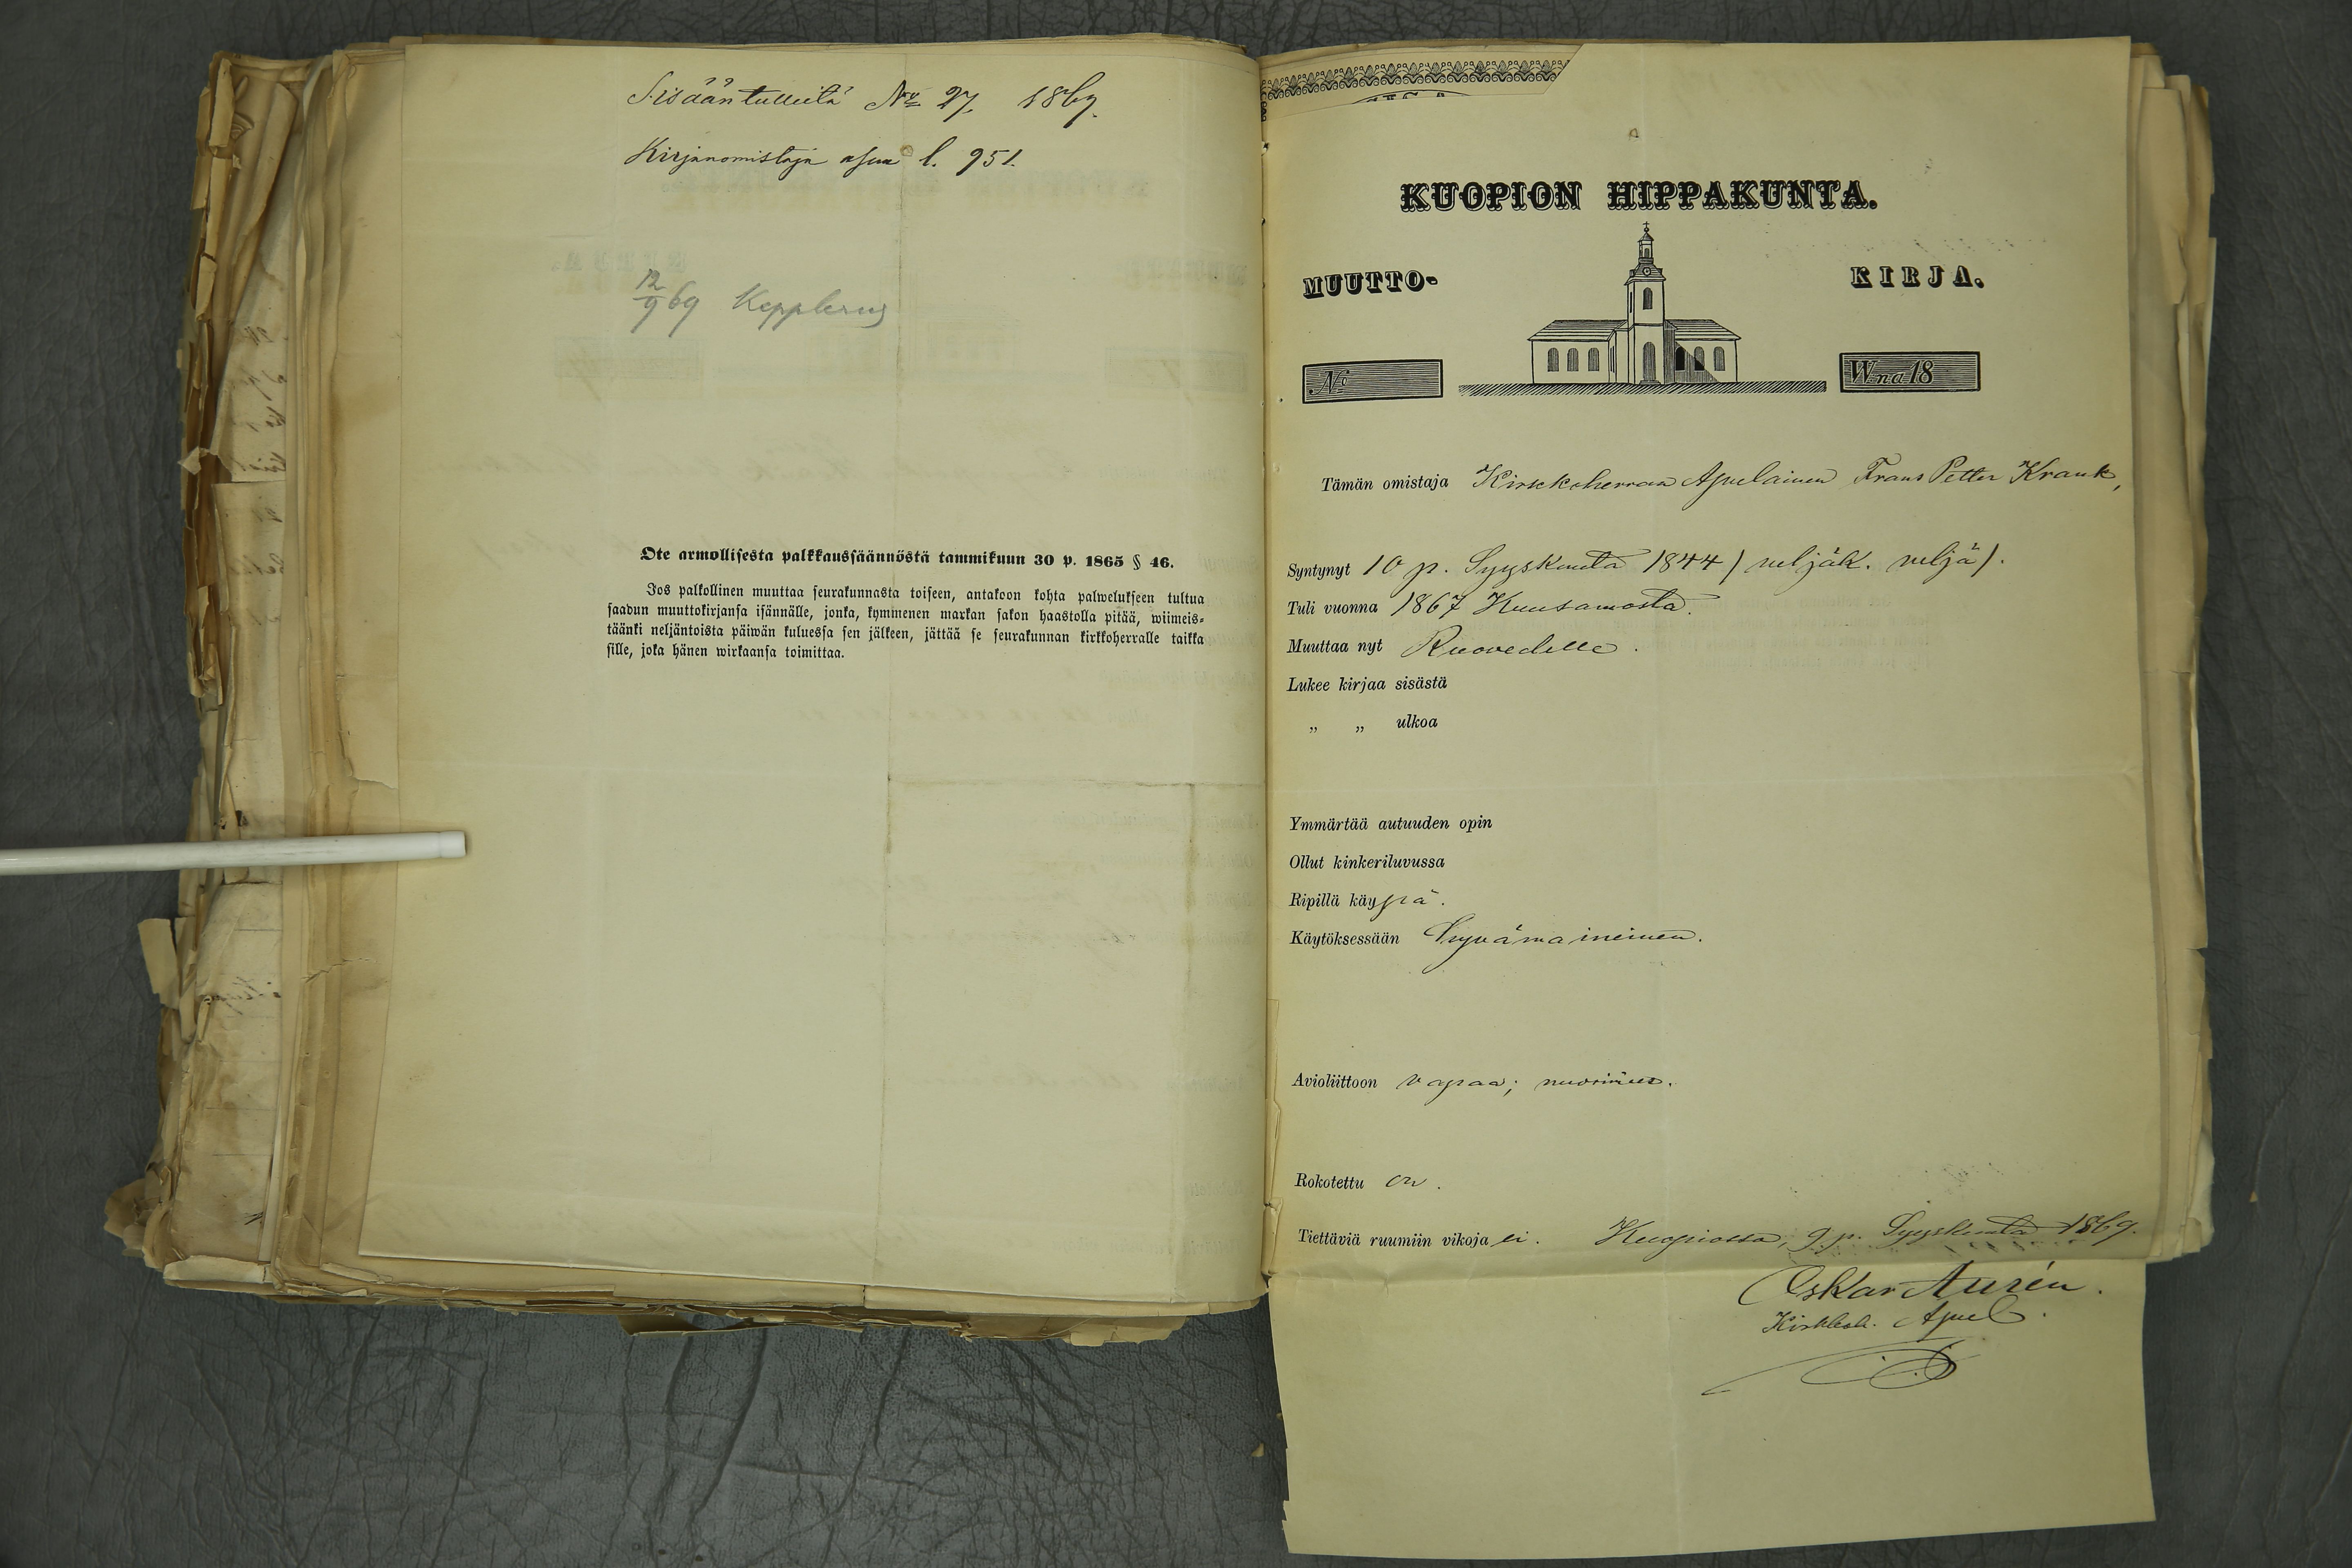 Sisääntulleita No 27. 1869.
Kirjanomistaja asuu l. 951.
12/9 69 Kepplerus
Ote armollisesta palkkaussäännöstä tammikuun 30 p. 1865 § 46.
Jos palkollinen muuttaa seurakunnasta toiseen, antakoon kohta palwelukseen tultua
saadun muuttokirjansa isännälle, jonka, kymmenen markan sakon haastolla pitää, wiimeis-
täänki neljäntoista päiwän kuluessa sen jälkeen, jättää se seurakunnan kirkkoherralle taikka
sille, joka hänen wirkaansa toimittaa.
KUOPION HIPPAKUNTA.
MUUTTO- KIRJA.
No Wna 18
Tämän omistaja Kirkkoherran Apulainen Frans Petter Krank,
Syntynyt 10 p. Syyskuuta 1844 / neljäk. neljä /.
Tuli vuonna 1867 Kuusamosta.
Muuttaa nyt Ruovedelle.
Lukee kirjaa sisästä
„ „ ulkoa
Ymmärtää autuuden opin
Ollut kinkeriluvussa
Ripillä käypä.
Käytöksessään Hyvämaineinen.
Avioliittoon vapaa; nuorimies.
Rokotettu on.
Tiettäviä ruumiin vikoja ei. Kuopiossa, 9 p. Syyskuuta 1869.
Oskar Aurén.
Kirkkoh. Apul.